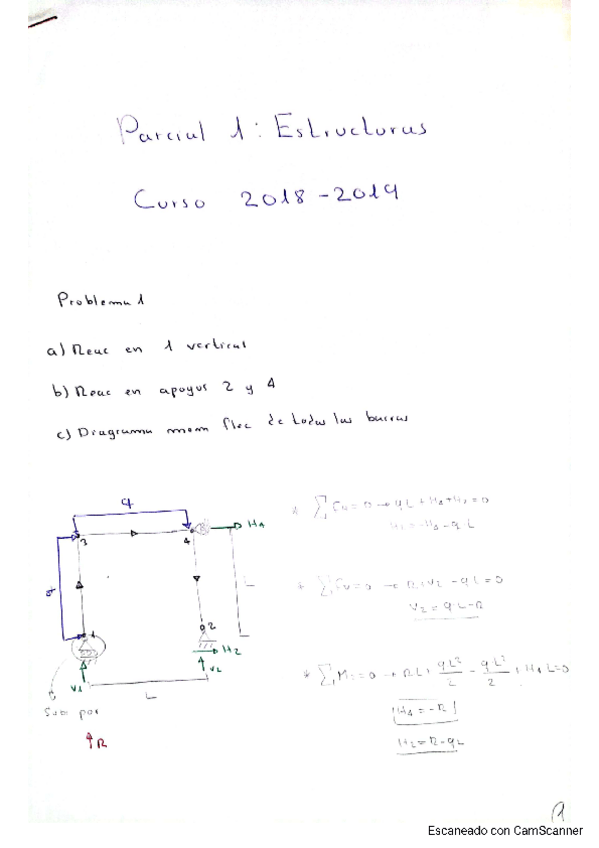 Parcial 1: Estructuras
Curso 2018-2019
Problema 1
a) Reac en 1 vertical
b) Reac en apoyos 2 y 4
c) Diagrama mom flec de todas las barras
q
H4
3
4
q
L
1
2
H2
V1
V2
L
Sust por
R
* ΣFH=0 → qL+H4+H2=0
H2=-H4-qL
* ΣFV=0 → R+V2-qL=0
V2=qL-R
=0 → RL+ qL²/2 - qL²/2 + H4 L=0
H4=-R
H2=R-qL
1
Escaneado con CamScanner